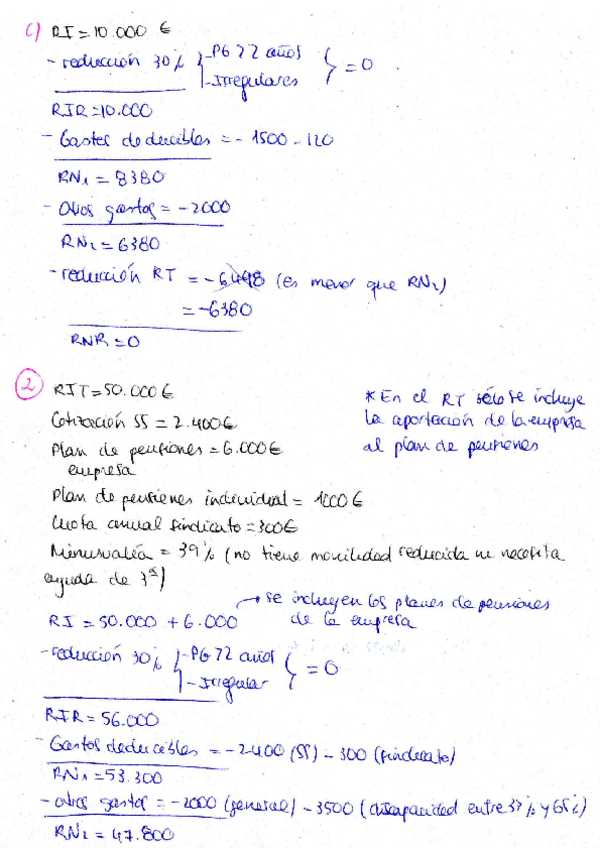 c) RI = 10.000 €
- reducción 30% { - PG > 2 años - Irregulares } = 0
RIR = 10.000
- Gastos deducibles = - 1500 - 120
RN₁ = 8380
- Otros gastos = - 2000
RN₂ = 6380
- reducción RT = - 6498 (es menor que RN₂)
= - 6380
RNR = 0
2 RIT = 50.000 €
Cotización SS = 2.400 €
Plan de pensiones = 6.000 €
empresa
Plan de pensiones individual = 1000 €
Cuota anual sindicato = 300 €
Minusvalía = 39% (no tiene movilidad reducida ni necesita
ayuda de 3ª)
* En el RT sólo se incluye
la aportación de la empresa
al plan de pensiones
→ se incluyen los planes de pensiones
de la empresa
RI = 50.000 + 6.000
- reducción 30% { - PG > 2 años - Irregular } = 0
RIR = 56.000
- Gastos deducibles = - 2400 (SS) - 300 (sindicato)
RN₁ = 53.300
- otros gastos = - 2000 (general) - 3500 (discapacidad entre 33% y 65%)
RN₂ = 47.800